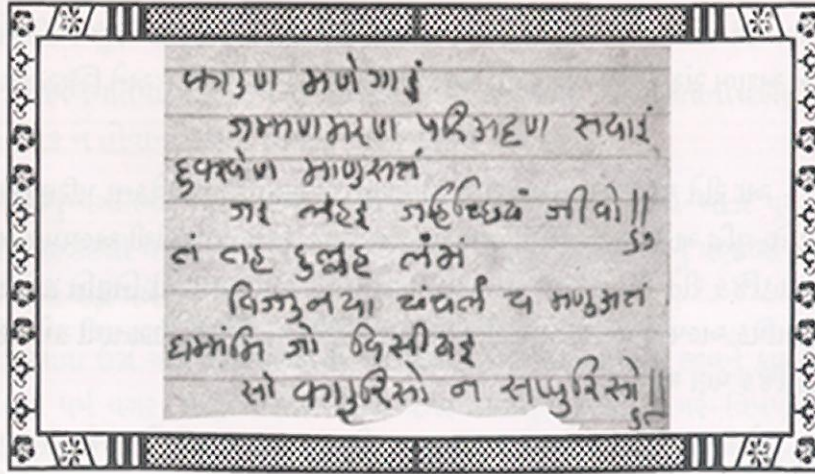 काउण मणेगाइं
जम्मणमरण परिअट्टण सयाइं
दुक्खेण माणुसत्तं
जइ लहइ जहिच्छियं जीवो||
तं तह दुल्लह लंभं
विज्जुलया चंचलं च मणुअत्तं
धम्मंमि जो विसीयइ
सो काउरिसो न सप्पुरिसो||